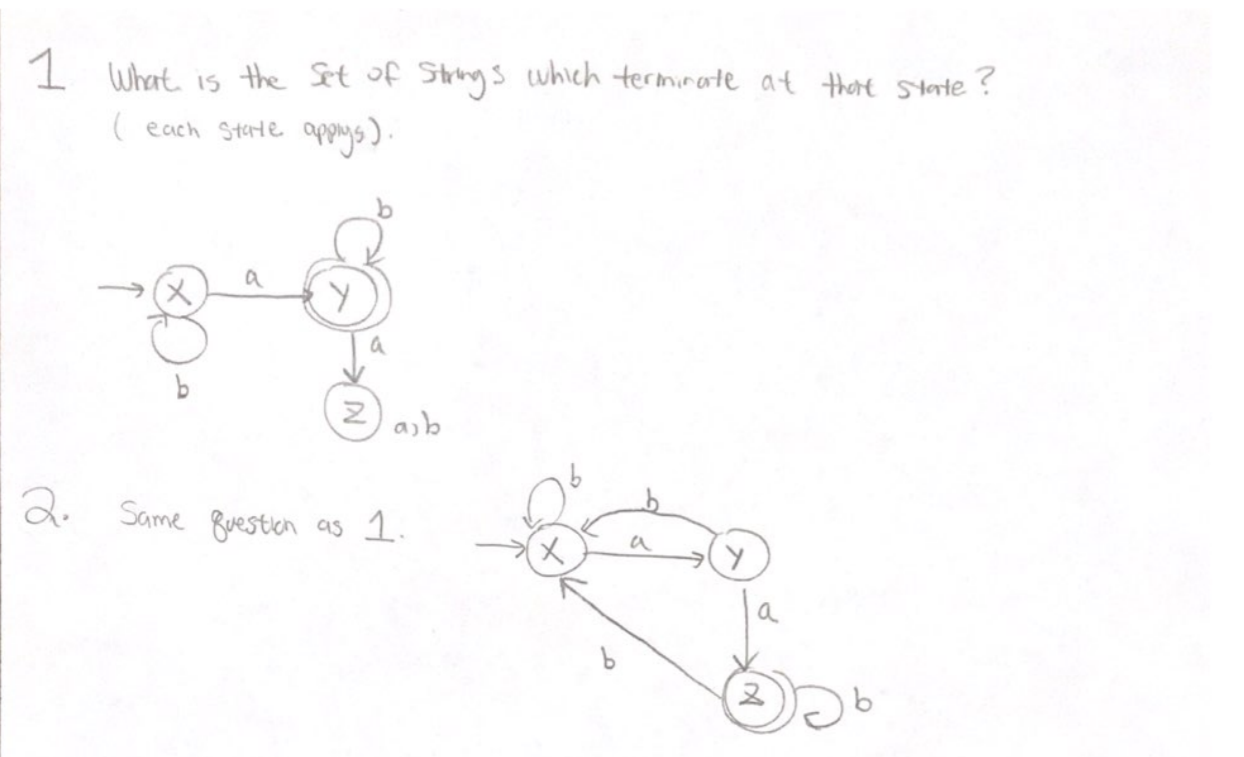 1 What is the set of strings which terminate at that state?
( each state applys).
b
a
X
Y
a
b
Z
a,b
b
2. Same question as 1.
b
a
X
Y
a
b
Z
b